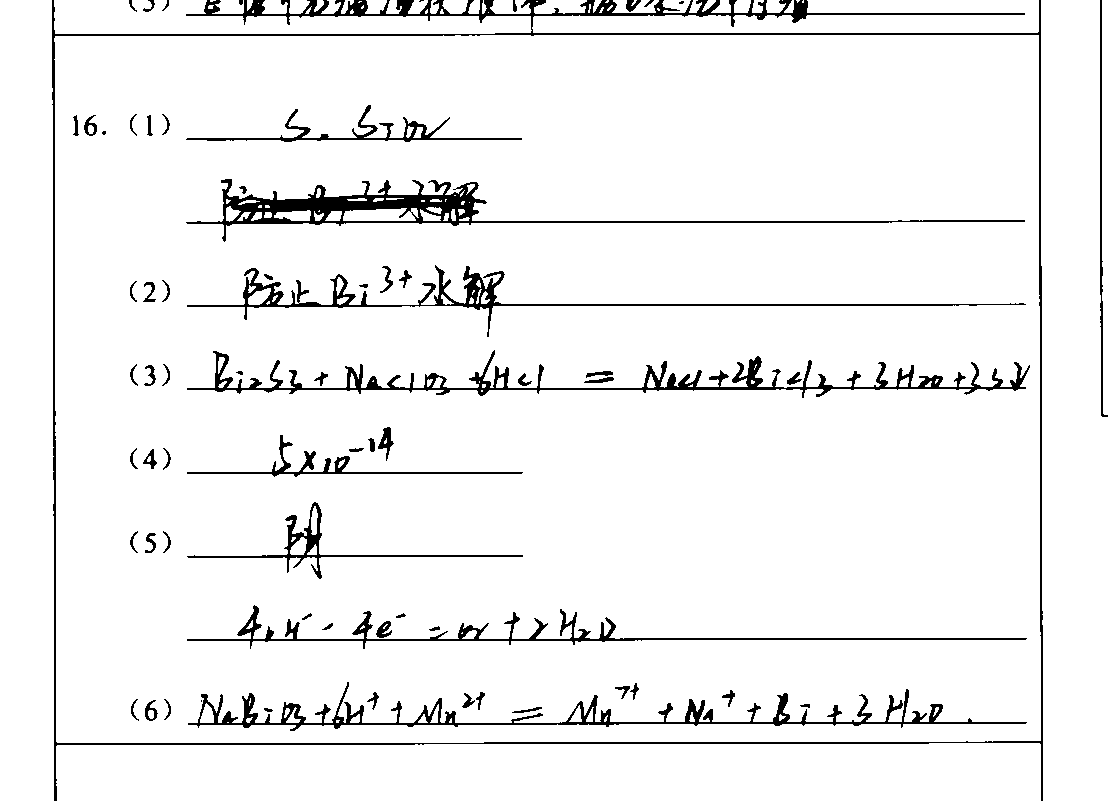 (3)
16. (1) S. SiO2
防止Bi3+水解
(2) 防止Bi3+水解
(3) Bi2S3 + NaClO3 + 6HCl = NaCl + 2BiCl3 + 3H2O + 3S↓
(4) 5×10-14
(5) 阴
4OH- - 4e- = O2 + 2H2O
(6) NaBiO3 + 6H+ + Mn2+ = Mn7+ + Na+ + Bi + 3H2O.